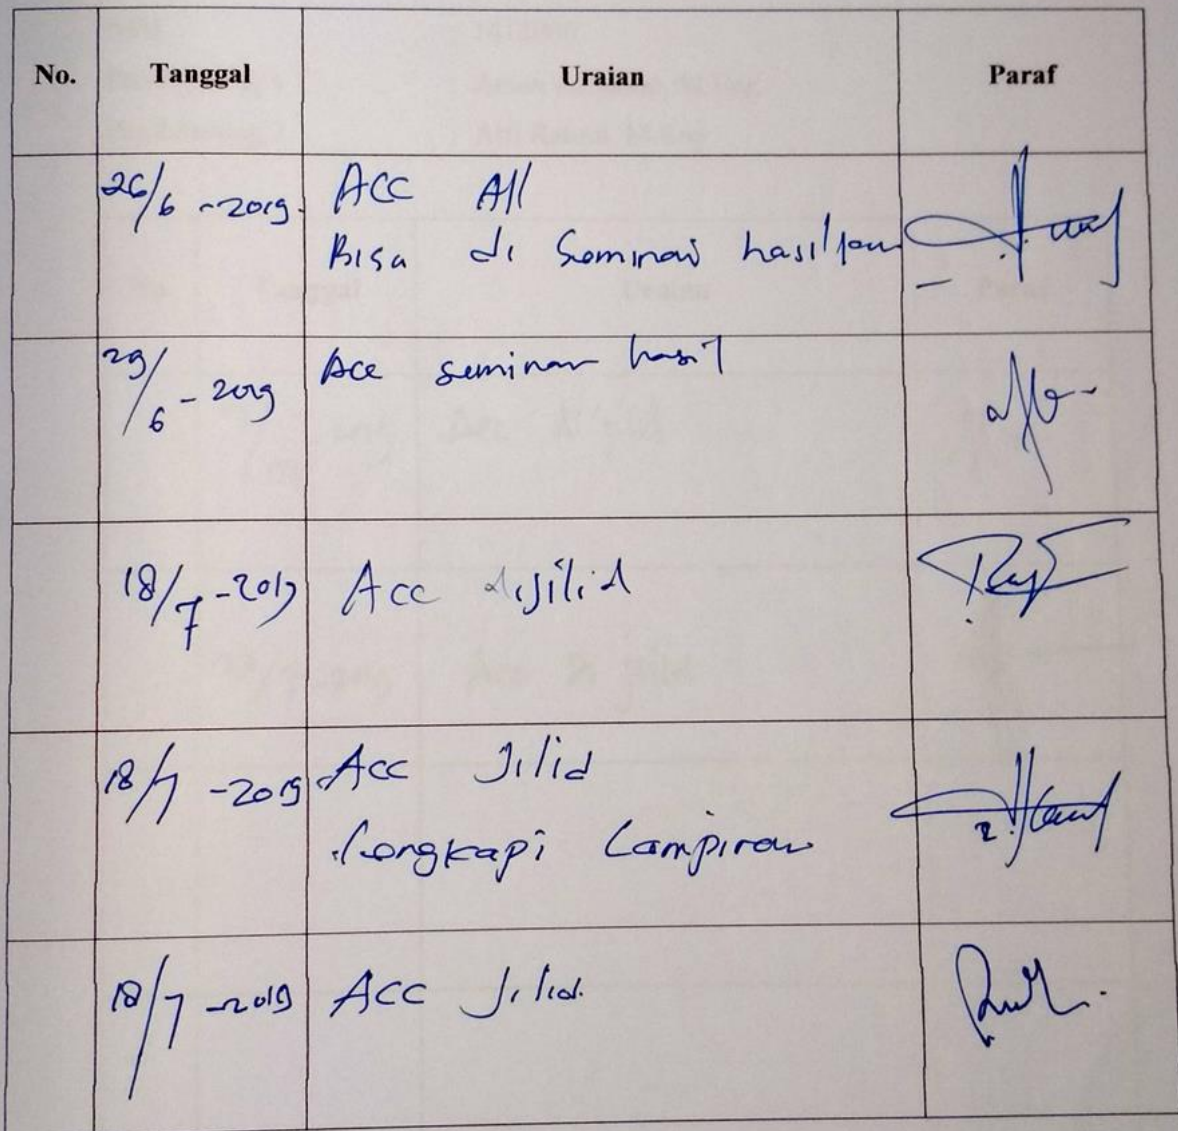 No. Tanggal Uraian Paraf
26/6 - 2019 ACC All
Bisa di Seminar hasilkan
29/6 - 2019 Acc seminar hasil
18/7 - 2019 Acc dijilid
18/7 - 2019 Acc Jilid
Lengkapi Lampiran
18/7 - 2019 Acc Jilid.